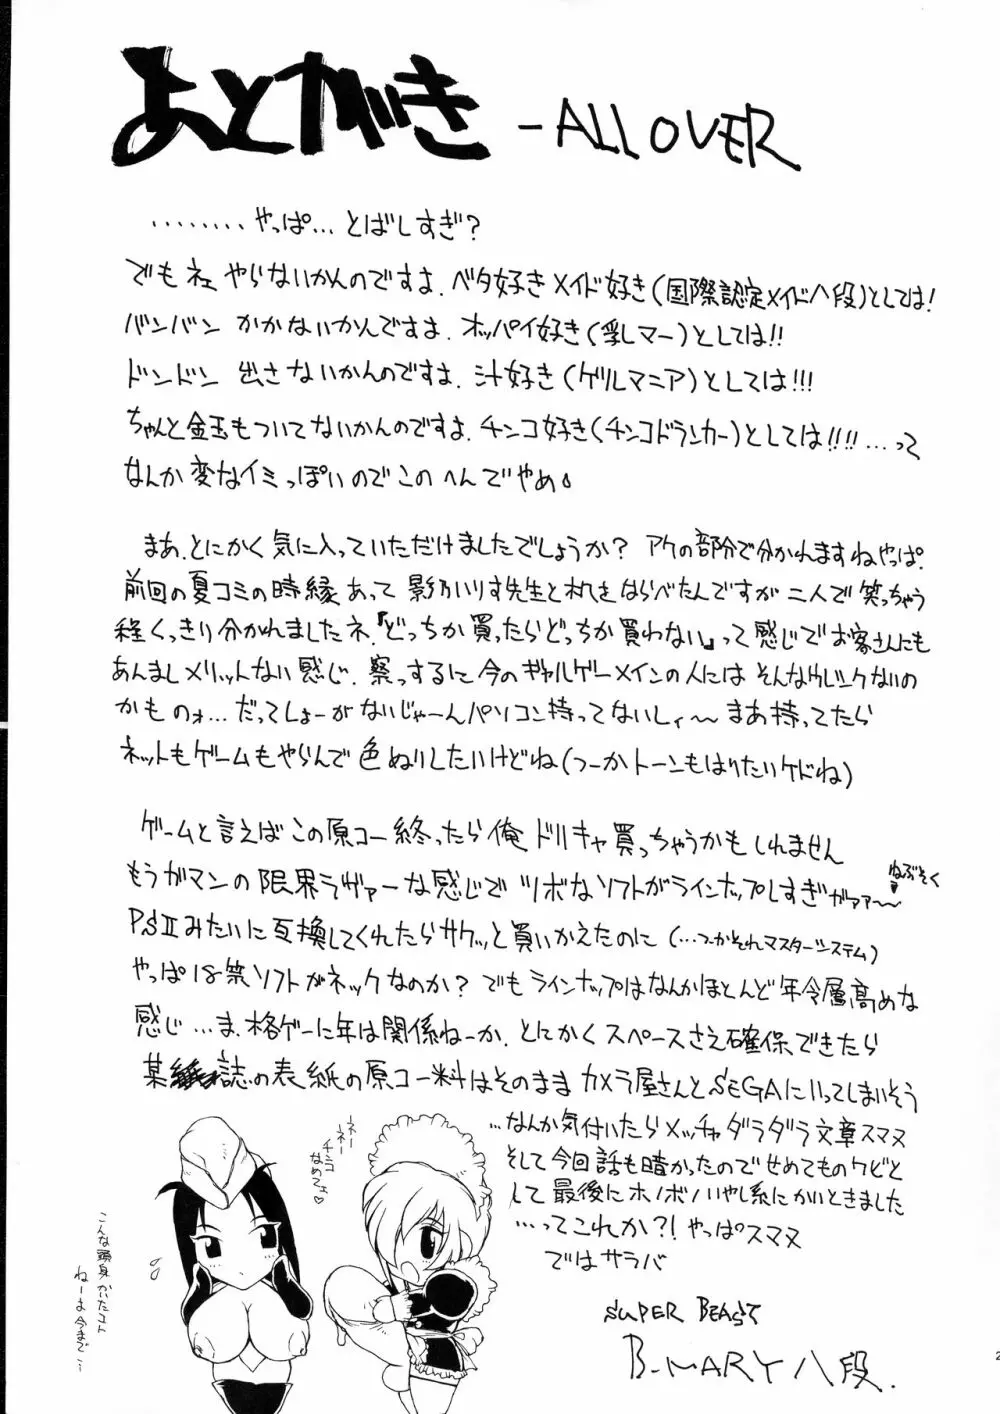 あとがき -ALL OVER
........やっぱ…とばしすぎ?
でもネェ やらないかんのですよ.ベタ好きメイド好き(国際認定メイド八段)としては!
バンバン かかないかんですよ.オッパイ好き(乳しマー)としては!!
ドンドン 出さないかんのですよ.汁好き(ゲリルマニア)としては!!!
ちゃんと金玉もついてないかんのですよ.チンコ好き(チンコドランカー)としては!!!!…って
なんか変なイミっぽいのでこのへんでやめ。
まあ.とにかく気に入っていただけましたでしょうか? アケの部分で分かれますねやっぱ.
前回の夏コミの時縁あって 影乃いりす先生と机をならべたんですが二人で笑っちゃう
程くっきり分かれましたネ.『どっちか買ったらどっちか買わない』って感じでお客さんにも
あんましメリットない感じ.察っするに今のギャルゲーメインの人には そんな
ないの
かものォ…だってしょーがないじゃーんパソコン持ってないしィ〜まあ持ってたら
ネットもゲームもやらんで色ぬりしたいけどね(つーかトーンもはりたいケドね)
ゲームと言えばこの原コー終ったら俺ドリキャ買っちゃうかもしれません
もうガマンの限界ラヴァーな感じでツボなソフトがラインナップしすぎがァァ〜
ねぶそく
PSⅡみたいに互換してくれたらサクッと買いかえたのに(…つーかそれマスターシステム)
やっぱ18禁ソフトがネックなのか?でもラインナップはなんかほとんど年令層高めな
感じ…ま.格ゲーに年は関係ねーか.とにかくスペースさえ確保できたら
某 誌の表紙の原コー料はそのまま カメラ屋さんとSEGAにいってしまいそう
…なんか気付いたらメッチャダラダラ文章スマヌ
そして今回話も暗かったのでせめてものケビと
して最後にホノボノいやし系にかいときました
…ってこれか?!やっぱスマヌ
ではサラバ
ネー
ネー
チンコ
なめてェ♡
こんな頭身かいたコト
ねーよ今まで…
SUPER BEAST
B-MARY 八段.
2